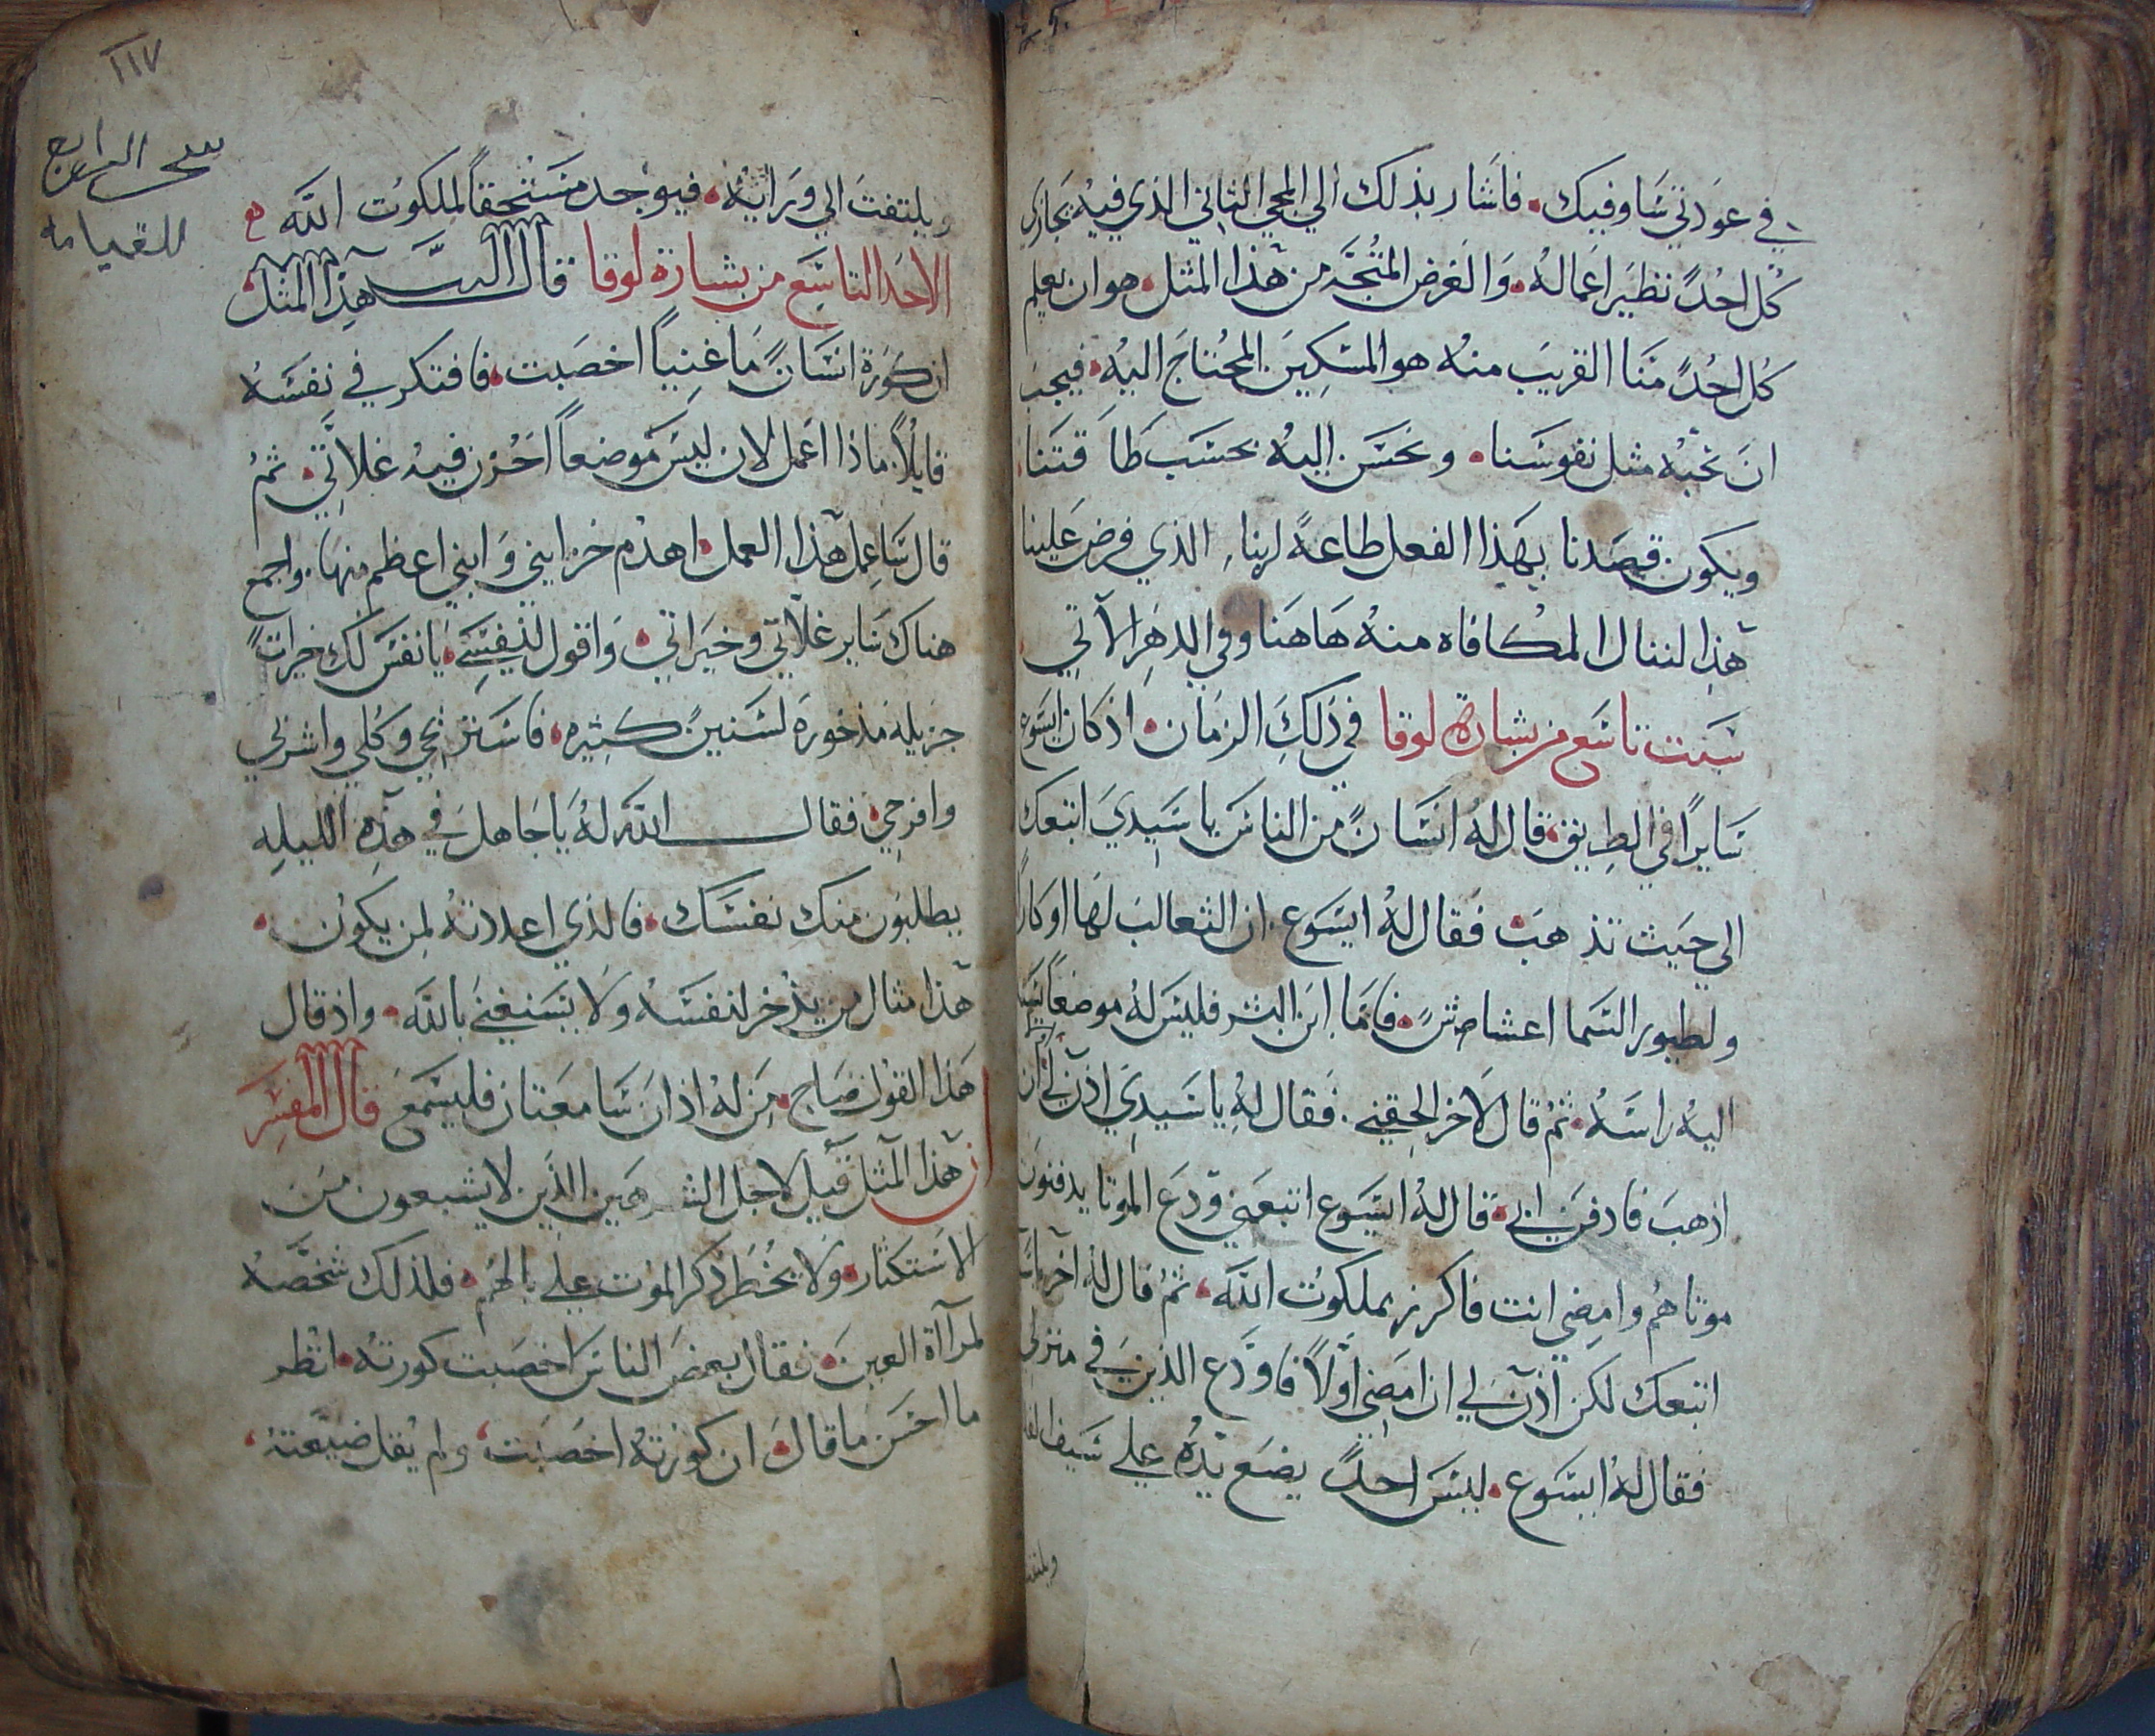 في عودتي ساوفيك فاشار بذلك الي المجي الثاني الذي فيه يجازي
كل احد نظير اعماله والغرض المتجه من هذا المثل هو ان يعلم
كل احد منا القريب منه هو المسكين المحتاج اليه فيجب
ان نحبه مثل نفوسنا ونحسن اليه بحسب طاقتنا
ويكون قصدنا بهذا الفعل طاعة لربنا الذي فرض علينا
هذا لننال المكافاه منه هاهنا وفي الدهر الآتي
سبت تاسع من بشارة لوقا في ذلك الزمان اذ كان ايسوع
سايرا في الطريق قال له انسان من الناس يا سيدي اتبعك
الي حيث تذهب فقال له ايسوع ان الثعالب لها اوكارا
ولطيور السما اعشاش فاما ابن البشر فليس له موضعا يسند
اليه راسه ثم قال لاخر الحقني فقال له يا سيدي اذن لي ان
اذهب فادفن ابي قال له ايسوع اتبعني ودع الموتا يدفنون
موتاهم وامضي انت فاكرز بملكوت الله ثم قال له آخر
اتبعك لكن اذن لي ان امضي اولا فاودع الذين في منزلي
فقال له ايسوع ليس احد يضع يده علي
١١٧
سحر الرابع
للقيامه
ويلتفت الي ورايه فيوجد مستحقا لملكوت الله
الاحد التاسع من بشارة لوقا قال الرب هذا المثل
ان كورة انسان ما غنيا اخصبت فافتكر في نفسه
قايلا ماذا اعمل لان ليس موضعا اخزن فيه غلاتي ثم
قال ساعمل هذا العمل اهدم خزايني وابني اعظم منها واجمع
هناك ساير غلاتي وخيراتي واقول لنفسي يا نفس لك خيرات
جزيله مذخورة لسنين كثيره فاستريحي وكلي واشربي
وافرحي فقال الله له يا جاهل في هذه الليله
يطلبون منك نفسك فالذي اعددته لمن يكون
هذا مثال من يذخر لنفسه ولا يستغني بالله واذ قال
هذا القول صاح من له اذان سامعتان فليسمع قال المفسر
ان هذا المثل قيل لاجل الشرهين الذين لا يشبعون من
الاستكثار ولا يخطر ذكر الموت علي بالهم فلذلك شخصه
لمرآاة العين فقال بعض الناس اخصبت كورته انظر
ما احسن ما قال ان كورته اخصبت ولم يقل ضيعته